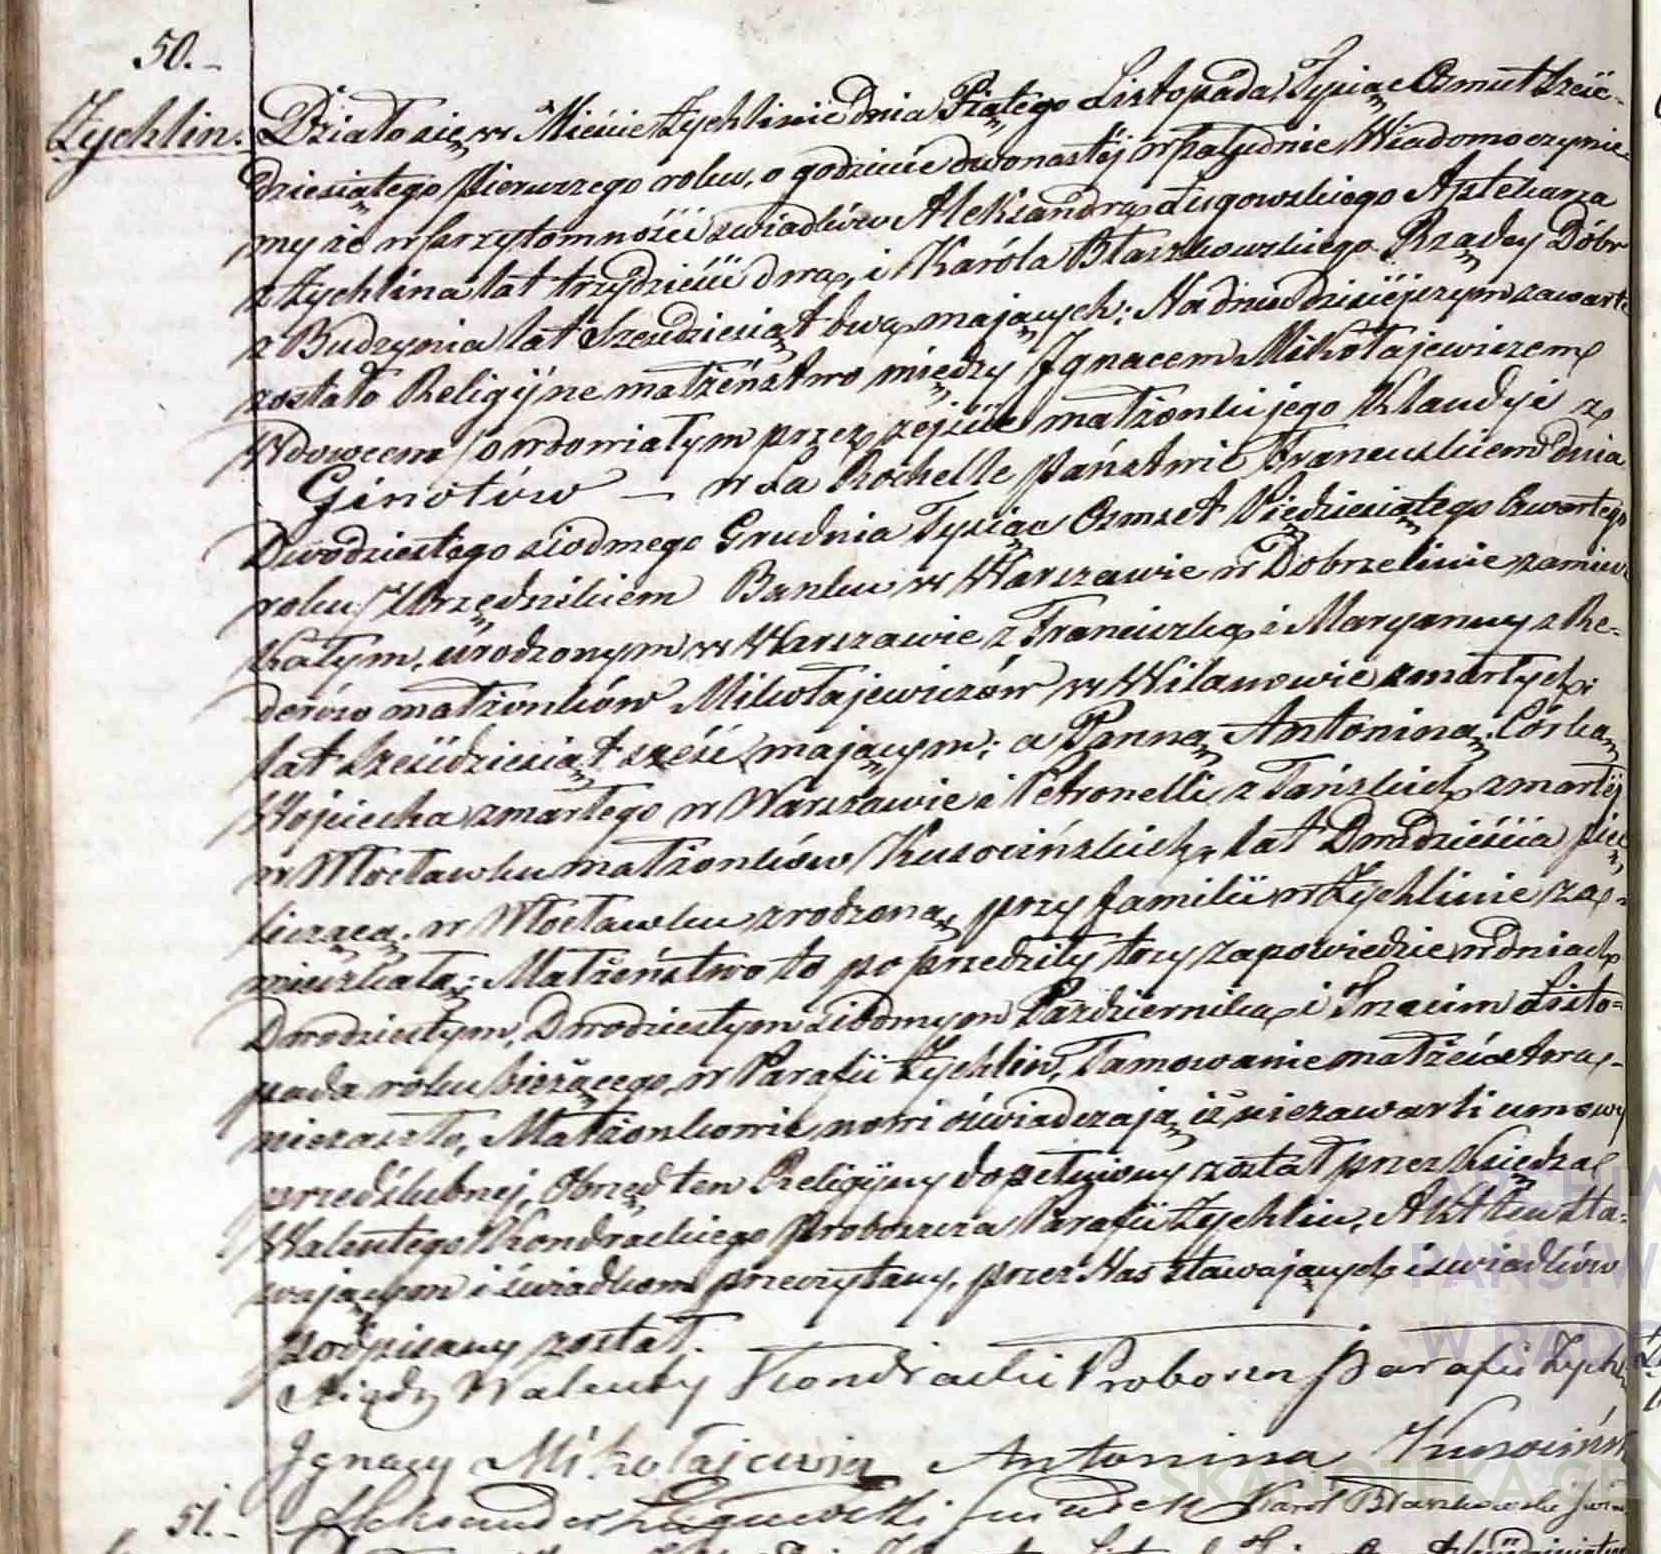 50.
Żychlin.
Działo się w Mieście Żychlinie dnia Piątego Listopada Tysiąc Ośmset Sześć-
dziesiątego Pierwszego roku, o godzinie dwonastéj w południe Wiadomo czynie-
my że w przytomności świadków Aleksandra Ługowskiego Aptekarza
z Żychlina lat trzydzieści dwa, i Karóla Błaszkowskiego Rządcy Dóbr
z Budzynia lat sześcdziesiąt dwa mających; Na dniu dzisiéjszym zawarte
zostało Religijne małżeństwo między Ignacem Mikołajewiczem
Wdowcem /owdowiałym przez zejście małżonki jego Klaudyi z
Ginotów — w La Rochelle Państwie Francuskiem dnia
Dwódziestego siódmego Grudnia Tysiąc Osmset Pięćdziesiątego Czwartego
roku/ Urzędnikiem Banku w Warszawie w Dobrzelinie zamiesz
kałym, urodzonym w Warszawie z Franciszka i Maryanny z Re-
derów małżonków Mikołajewiczów w Wilanowie zmarłych;
lat sześćdziesiąt sześć mającym; a Panną Antoniną, Córką
Wojciecha zmarłego w Warszawie i Petronelli z Tańskich zmarłéj
w Włocławku małżonków Kusocińskich, lat Dwadzieścia pięć
liczącą, w Włocławku zrodzoną, przy familii w Żychlinie za-
mieszkałą; Małżeństwo to poprzedziły trzy zapowiedzie w dniach
Dwódziestym, Dwódziestym siódmym Października i Trzecim Listo-
pada roku bieżącego, w Parafii Żychlin, Tamowanie małżeństwa
niezaszło, Małżonkowie nowi oświadczają iż niezawarli umowy
przedślubnej, Obrzęd ten Religijny dopełniony został przez Księdza
Walentego Kondrackiego Proboszcza Parafii Żychlin, Akt ten sta-
wającym i świadkom przeczytany, przez Nas stawających i świadków
podpisany został.
Ksiądz Walenty Kondracki Proboszcz Parafii Żychlin
Ignacy Mikołajewicz Antonina Kusocińsk
Aleksander Ługowski świadek Karol Błaszkowski świa
51.
ARCHIW
PAŃSTW
W RADO
SKANOTEKA.GEN